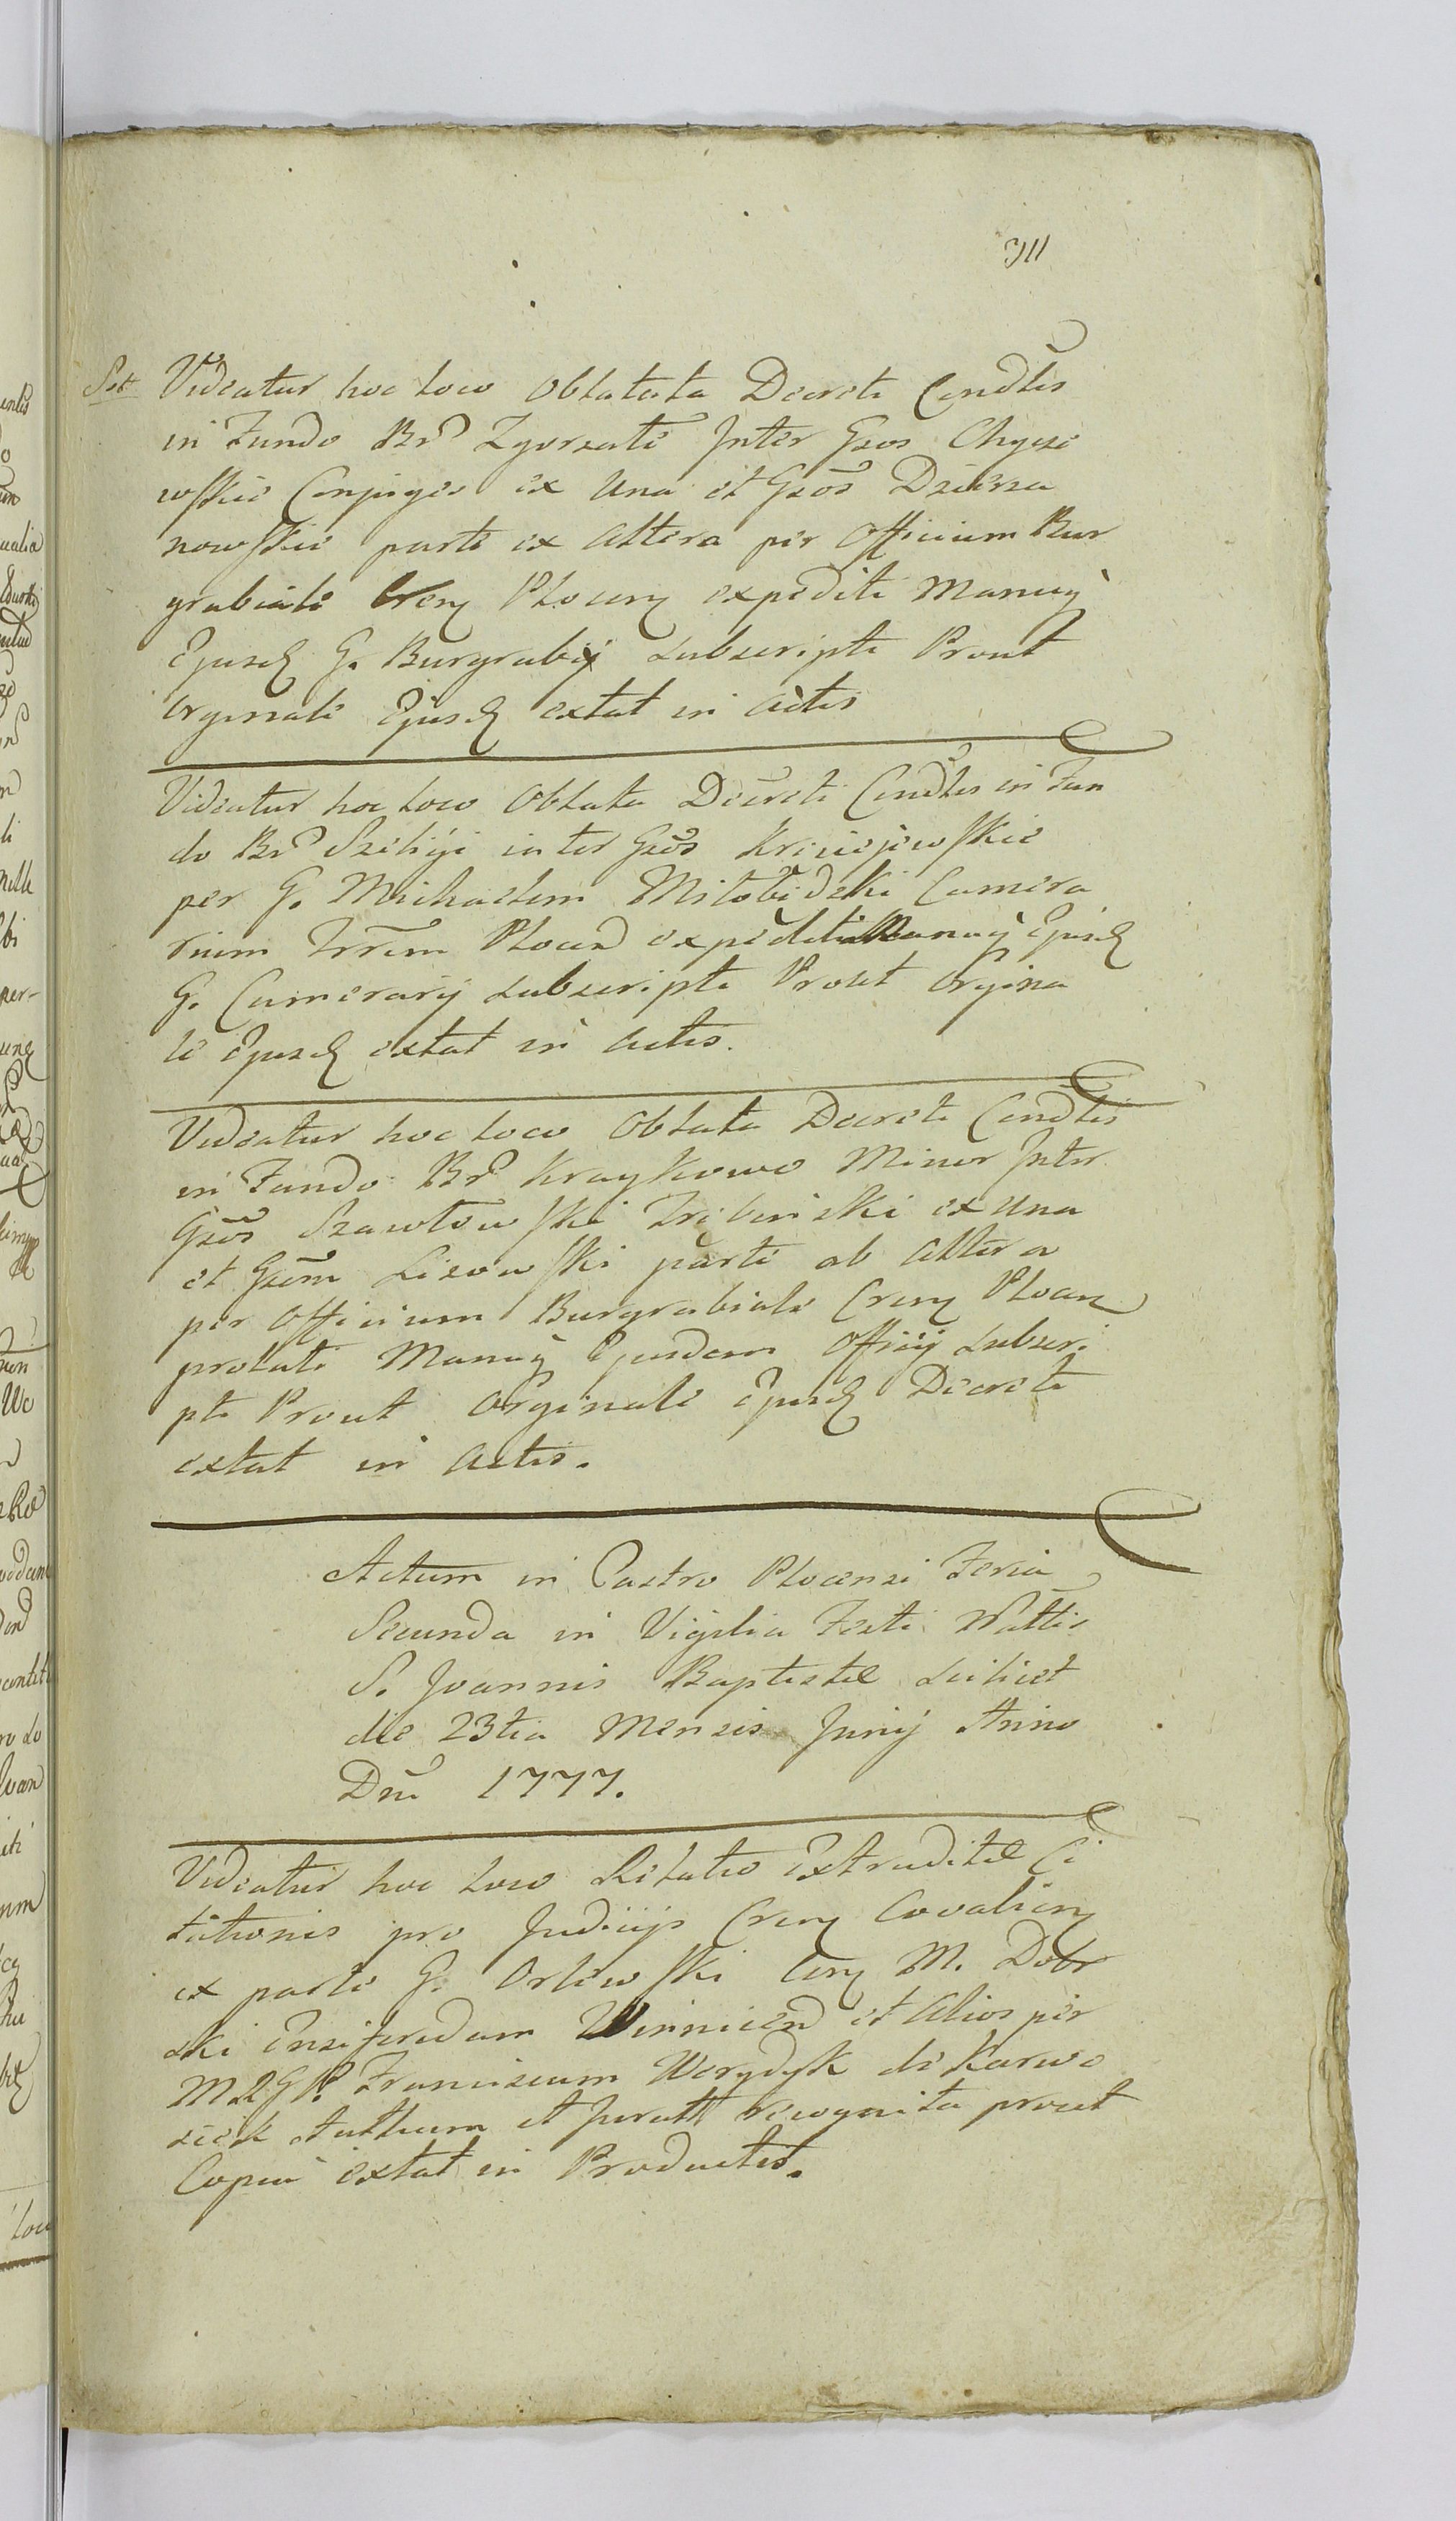 311
Videatur hoc loco Oblatata Decreti Cendlis
in Fundo Br. Zgorzate Inter Gsos Chyze
wskie Conjuges ex Una et Gsos Dzierza
nowskie parte ex altera per Officium Bur
grabiale Cren Plocen expediti Manuq
Ejusd G. Burgrabij subscripti Prout
Orginale Ejusd extat in Actis
Videatur hoc loco Oblata Decreti Cendlis in Fun
do Br. Szeligi inter Gsos Krzciejewskie
per G. Michaelem Milobędzki Camera
rium Trrem Plocen expediti Manuq Ejusd
G. Camerarij subscripti Prout Orgina
le Ejusd extat in Actis.
Videatur hoc loco Oblata Decreti Cendlis
in Fundo Br. Kraykowo Minor Inter
Gsos Szawłowski Trebinski ex Una
et Gsum Lisowski parte ab altera
per Officium Burgrabiale Cren Plocen
prolati Manuq Ejusdem Officij subscri
pti Prout Orginale Ejusd Decreti
extat in Actis.
Actum in Castro Plocensi Feria
Secunda in Vigilia Festi Nattis
S. Joannis Baptistæ scilicet
die 23tia Mensis Junij Anno
Dni 1777.
Videatur hoc loco Relatio Extraditæ Ci
tationis pro Judicijs Cren Covalien
ex parte G. Orłowski M. Dobr
ski Ensiferidam Winnicen et Alios per
M. Franciscum Werydyk de Karwo
siek Authum et Juratt recognita prout
Copia extat in Productis.